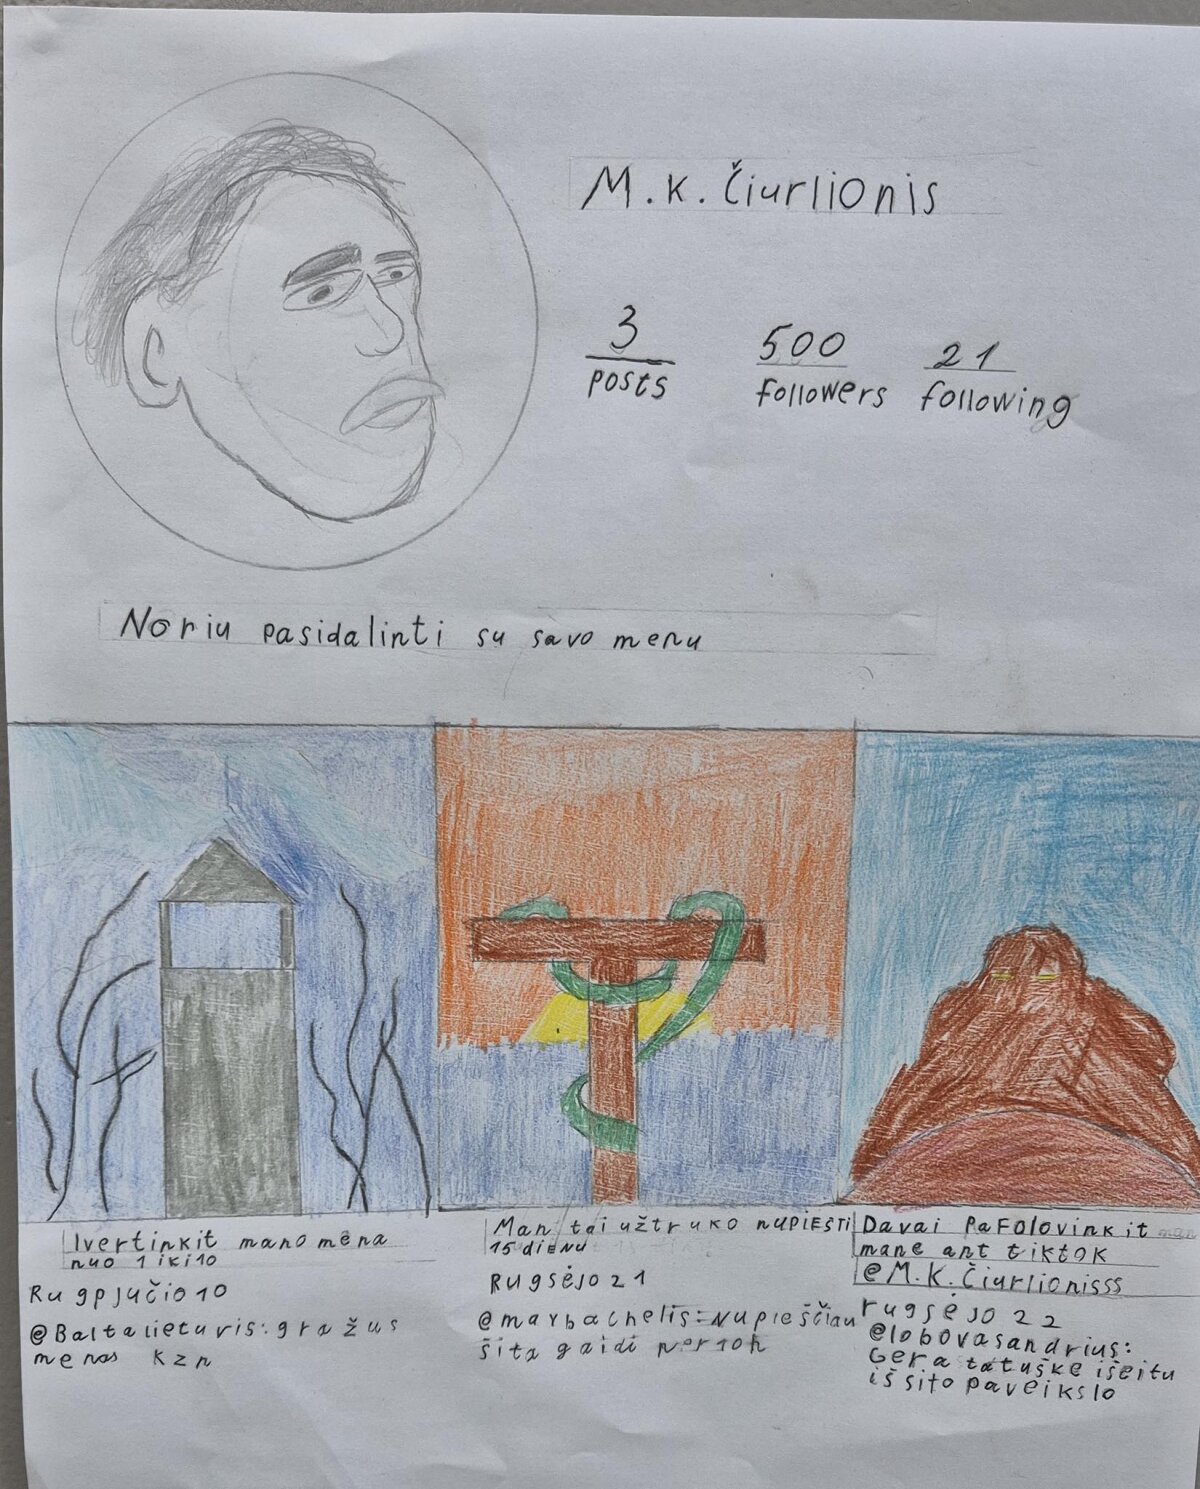 M.K. Čiurlionis
3 500 21
posts followers following
Noriu pasidalinti su savo menu
Ivertinkit mano mėna
nuo 1 iki 10
Rugpjučio 10
@Baltalieturis: gražus
menas kzn
Man tai užtruko nupiešti
15 dienu
Rugsėjo 21
@marbachelis: Nupieščiau
šita gaidi per 10h
Davai pafolovinkit
mane ant tiktok
@M.K.Čiurlionisss
rugsėjo 22
@lobovasandrius:
Gera tatuške išeitu
iš sito paveikslo